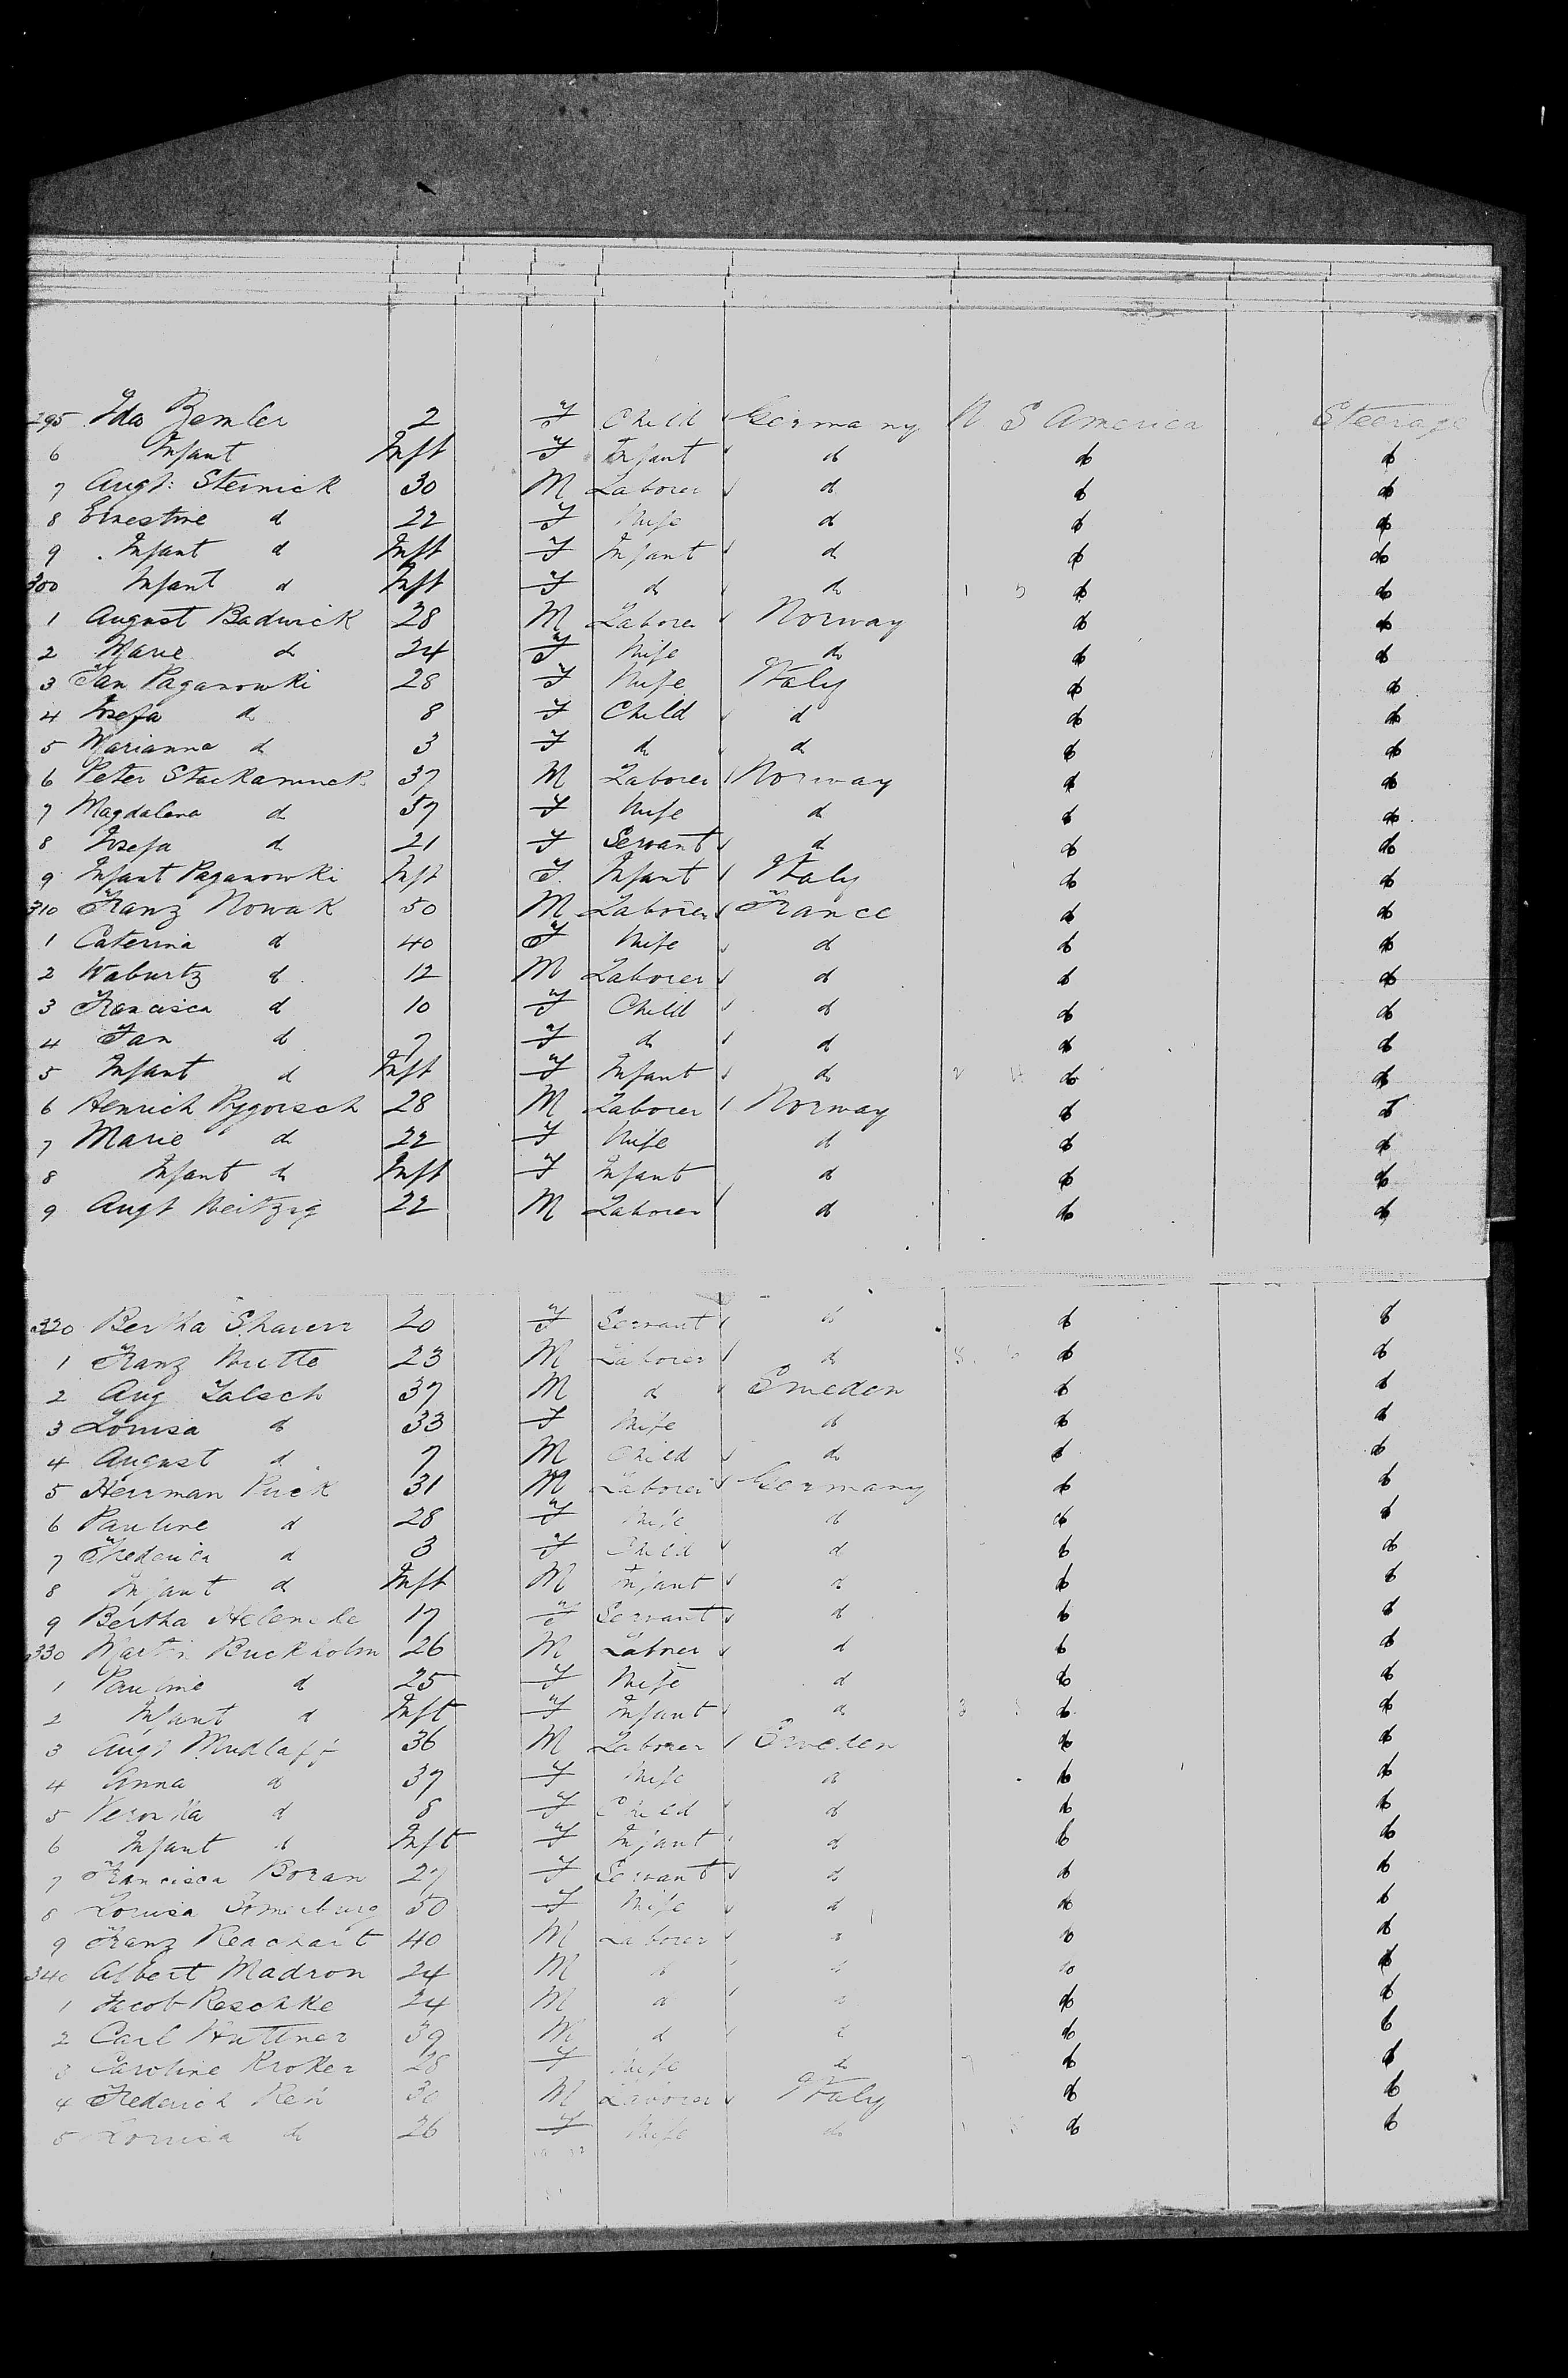 295 Ida Bemler 2 F Child Germany U S America Steerage
6 Infant Inft F Infant do do do
7 Augt: Sternick 30 M Laborer do do do
8 Ernestine do 22 F Wife do do do
9 Infant do Inft F Infant do do do
300 Infant do Inft F do do do do
1 August Badwick 28 M Laborer Norway do do
2 Marie do 24 F Wife do do do
3 Jan Paganowki 28 F Wife Italy do do
4 Josefa do 8 F Child do do do
5 Marianna do 3 F do do do do
6 Peter 37 M Laborer Norway do do
7 Magdalena do 37 F Wife do do do
8 Josefa do 21 F Servant do do do
9 Infant Paganowki Inft F Infant Italy do do
310 Franz Nowak 50 M Laborer France do do
1 Caterina do 40 F Wife do do do
2 Waburtz do 12 M Laborer do do do
3 Francisca do 10 F Child do do do
4 Jan do 7 F do do do do
5 Infant do Inft F Infant do do do
6 Henrich Pygorsch 28 M Laborer Norway do do
7 Marie do 22 F Wife do do do
8 Infant do Inft F Infant do do do
9 Augt Weitzig 22 M Laborer do do do
320 Bertha 20 F Servant do do do
1 Franz Wutte 23 M Laborer do do do
2 Aug Zalsch 37 M do Sweden do do
3 Louisa do 33 F Wife do do do
4 August do 7 M Child do do do
5 Herrman Puck 31 M Laborer Germany do do
6 Pauline do 28 F Wife do do do
7 Frederica do 3 F Child do do do
8 Infant do Inft M Infant do do do
9 Bertha 17 F Servant do do do
330 Martin Buckholm 26 M Labrer do do do
1 Pauline do 25 F Wife do do do
2 Infant do Inft F Infant do do do
3 Augt Mudlaff 36 M Laborer Sweden do do
4 Anna do 37 F Wife do do do
5 do 8 F Child do do do
6 Infant do Inft F Infant do do do
7 Francisca Boran 27 F Servant do do do
8 Louisa 50 F Wife do do do
9 Franz 40 M Laborer do do do
340 Albert Madron 24 M do do do do
1 Jacob Reschke 24 M do do do do
2 Carl Huttner 39 M do do do do
3 Caroline Kroker 28 F Wife do do do
4 Frederich Reh 30 M Laborer Italy do do
5 Louisa do 26 F Wife do do do